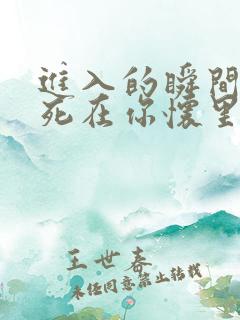 進入的瞬間
死在你懷里
王世春
未经同意禁止转载